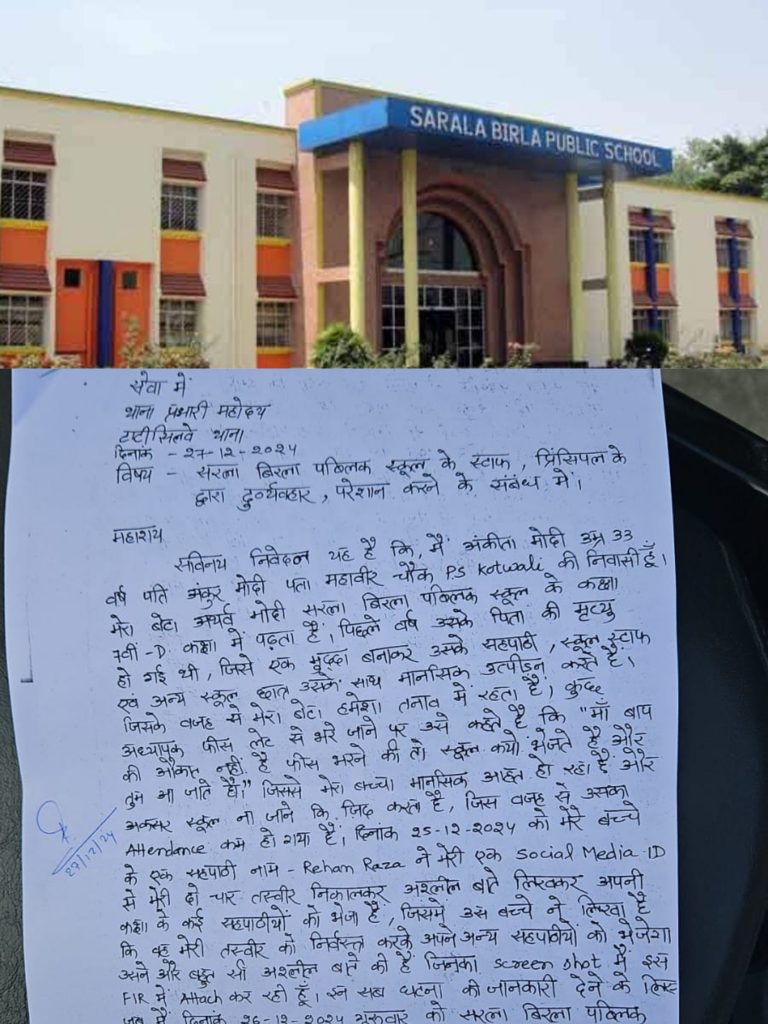 SARALA BIRLA PUBLIC SCHOOL
सेवा में
थाना प्रभारी महोदय
टाटीसिलवे थाना
दिनांक - 27-12-2024
विषय - सरला बिरला पब्लिक स्कूल के स्टाफ, प्रिंसिपल के
द्वारा दुर्व्यवहार, परेशान करने के संबंध में।
महाशय
सविनय निवेदन यह है कि, मैं अंकीता मोदी उम्र 33
वर्ष पति अंकुर मोदी पता महावीर चौक PS Kotwali की निवासी हूँ।
मेरा बेटा अथर्व मोदी सरला बिरला पब्लिक स्कूल के कक्षा
7वीं-D कक्षा में पढ़ता है, पिछले वर्ष उसके पिता की मृत्यु
हो गई थी, जिसे एक मुद्दा बनाकर उसके सहपाठी, स्कूल स्टाफ
एवं अन्य स्कूल छात्र उसके साथ मानसिक उत्पीड़न करते हैं।
जिसके वजह से मेरा बेटा हमेशा तनाव में रहता है, कुछ
अध्यापक फीस लेट से भरे जाने पर उसे कहते है कि "माँ बाप
की औकात नहीं है फीस भरने की तो स्कूल क्यों भेजते है और
तुम आ जाते हो।" जिससे मेरा बच्चा मानसिक आहत हो रहा है और
अकसर स्कूल ना जाने कि जिद करता है, जिस वजह से उसका
Attendance कम हो गया है। दिनांक 25-12-2024 को मेरे बच्चे
के एक सहपाठी नाम - Rehan Raza ने मेरी एक Social Media ID
से मेरी दो चार तस्वीर निकालकर अश्लील बाते लिखकर अपनी
कक्षा के कई सहपाठीयों को भेजा है, जिसमें उस बच्चे ने लिखा है
कि वह मेरी तस्वीर को निर्वस्त्र करके अपने अन्य सहपाठीयों को भेजेगा
उसने और बहुत सी अश्लील बाते की है जिनका screen shot मैं इस
FIR में Attach कर रही हूँ। इन सब घटना की जानकारी देने के लिए
जब मैं दिनांक 26-12-2024 गुरूवार को सरला बिरला पब्लिक
27/12/24